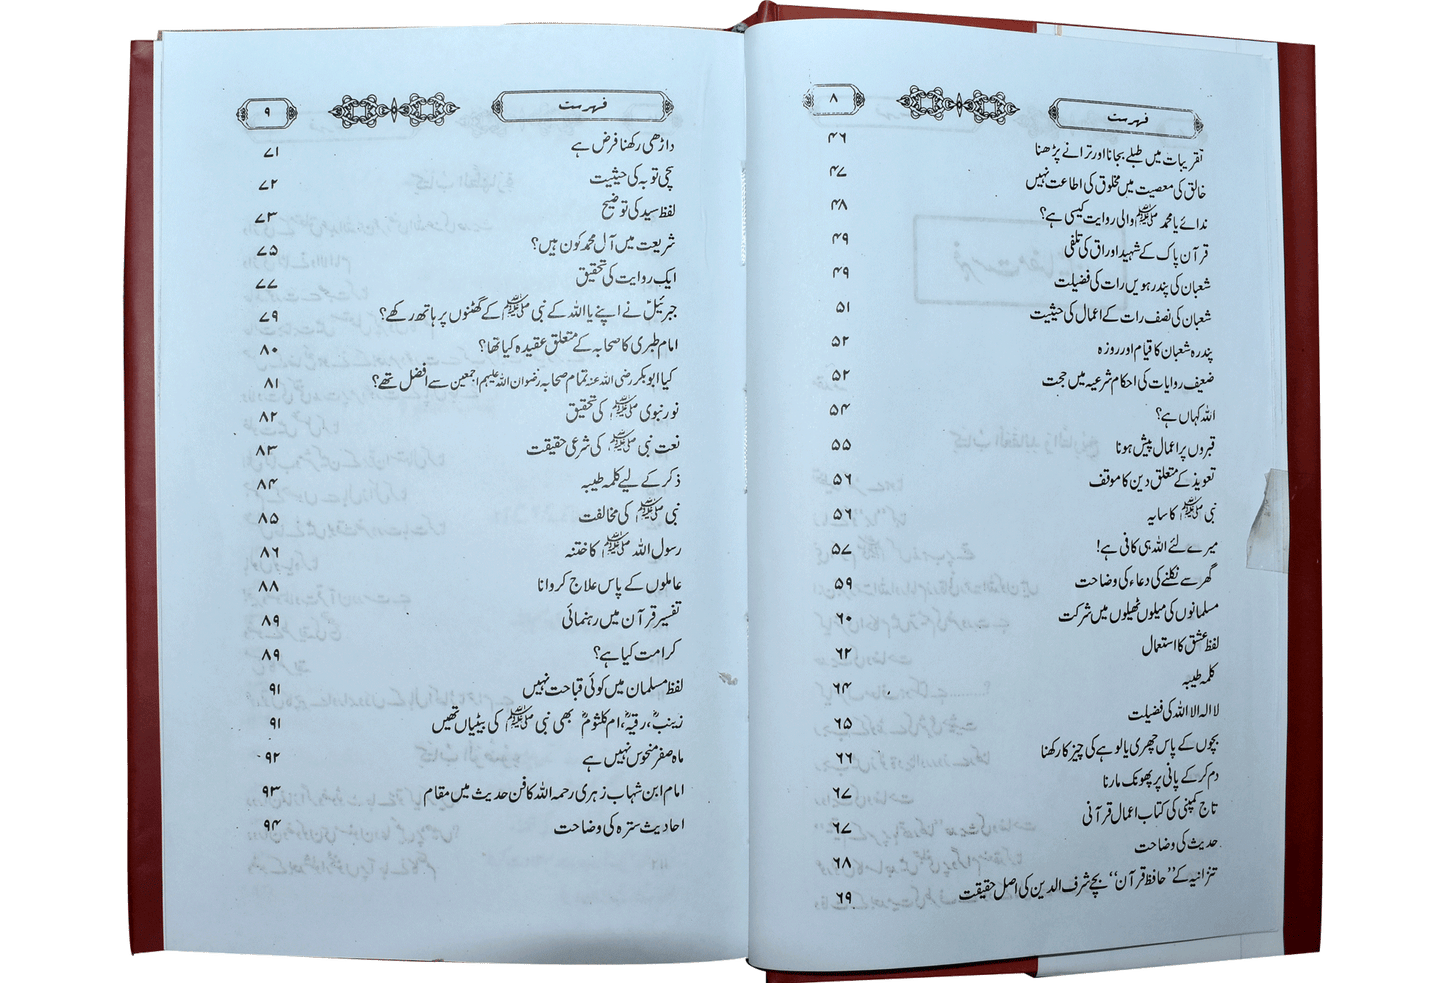 فہرست ۸
تقریبات میں طبلے بجانا اور ترانے پڑھنا ۴۶
خالق کی معصیت میں مخلوق کی اطاعت نہیں ۴۷
ندائے یا محمد ﷺ والی روایت کیسی ہے؟ ۴۸
قرآن پاک کے شہید اوراق کی تلفی ۴۹
شعبان کی پندرہویں رات کی فضیلت ۴۹
شعبان کی نصف رات کے اعمال کی حیثیت ۵۱
پندرہ شعبان کا قیام اور روزہ ۵۲
ضعیف روایات کی احکام شرعیہ میں حجت ۵۲
اللہ کہاں ہے؟ ۵۴
قبروں پر اعمال پیش ہونا ۵۵
تعویذ کے متعلق دین کا موقف ۵۶
نبی ﷺ کا سایہ ۵۶
میرے لئے اللہ ہی کافی ہے! ۵۷
گھر سے نکلنے کی دعاء کی وضاحت ۵۹
مسلمانوں کی میلوں ٹھیلوں میں شرکت ۶۰
لفظ عشق کا استعمال ۶۲
کلمہ طیبہ ۶۴
لا الہ الا اللہ کی فضیلت ۶۵
بچوں کے پاس چھری یا لوہے کی چیز کا رکھنا ۶۶
دم کر کے پانی پر پھونک مارنا ۶۷
تاج کمپنی کی کتاب اعمال قرآنی ۶۷
حدیث کی وضاحت ۶۸
تنزانیہ کے "حافظ قرآن" بچے شرف الدین کی اصل حقیقت ۶۹
فہرست ۹
داڑھی رکھنا فرض ہے ۷۱
سچی توبہ کی حیثیت ۷۲
لفظ سید کی توضیح ۷۳
شریعت میں آل محمد کون ہیں؟ ۷۵
ایک روایت کی تحقیق ۷۷
جبرئیلؑ نے اپنے یا اللہ کے نبی ﷺ کے گھٹنوں پر ہاتھ رکھے؟ ۷۹
امام طبری کا صحابہ کے متعلق عقیدہ کیا تھا؟ ۸۰
کیا ابو بکر رضی اللہ عنہ تمام صحابہ رضوان اللہ علیہم اجمعین سے افضل تھے؟ ۸۱
نور نبوی ﷺ کی تحقیق ۸۲
نعت نبی ﷺ کی شرعی حقیقت ۸۳
ذکر کے لیے کلمہ طیبہ ۸۴
نبی ﷺ کی مخالفت ۸۵
رسول اللہ ﷺ کا ختنہ ۸۶
عاملوں کے پاس علاج کروانا ۸۸
تفسیر قرآن میں رہنمائی ۸۹
کرامت کیا ہے؟ ۸۹
لفظ مسلمان میں کوئی قباحت نہیں ۹۱
زینبؓ، رقیہؓ، ام کلثومؓ بھی نبی ﷺ کی بیٹیاں تھیں ۹۱
ماہ صفر منحوس نہیں ہے ۹۲
امام ابن شہاب زہری رحمہ اللہ کا فن حدیث میں مقام ۹۳
احادیث سترہ کی وضاحت ۹۴